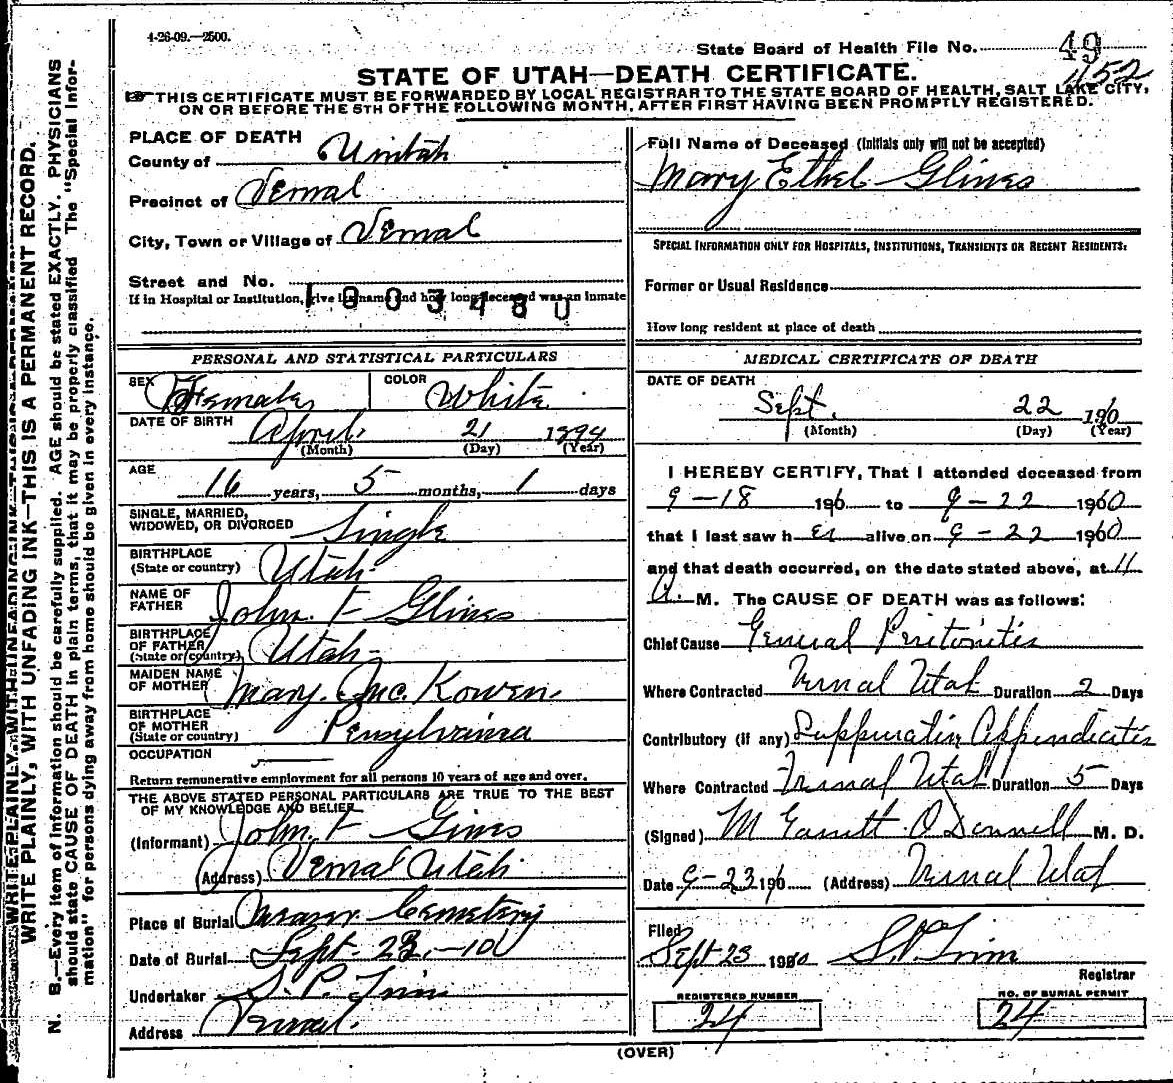 4-26-09.—2500.
State Board of Health File No. 49
452
STATE OF UTAH—DEATH CERTIFICATE.
THIS CERTIFICATE MUST BE FORWARDED BY LOCAL REGISTRAR TO THE STATE BOARD OF HEALTH, SALT LAKE CITY,
ON OR BEFORE THE 5TH OF THE FOLLOWING MONTH, AFTER FIRST HAVING BEEN PROMPTLY REGISTERED.
WRITE PLAINLY, WITH UNFADING INK—THIS IS A PERMANENT RECORD.
N. B.—Every item of information should be carefully supplied. AGE should be stated EXACTLY. PHYSICIANS
should state CAUSE OF DEATH in plain terms, that it may be properly classified The "Special Infor-
mation" for persons dying away from home should be given in every instance.
PLACE OF DEATH
County of Uintah
Precinct of Vernal
City, Town or Village of Vernal
Street and No.
If in Hospital or Institution, give its name and how long deceased was an inmate
1003480
PERSONAL AND STATISTICAL PARTICULARS
SEX Female COLOR White
DATE OF BIRTH April 21 1894
(Month) (Day) (Year)
AGE
16 years, 5 months, 1 days
SINGLE, MARRIED,
WIDOWED, OR DIVORCED Single
BIRTHPLACE
(State or country) Utah
NAME OF
FATHER John F Glines
BIRTHPLACE
OF FATHER
(State or country) Utah
MAIDEN NAME
OF MOTHER Mary Mc. Kowen
BIRTHPLACE
OF MOTHER
(State or country) Pensylvaina
OCCUPATION
Return remunerative employment for all persons 10 years of age and over.
THE ABOVE STATED PERSONAL PARTICULARS ARE TRUE TO THE BEST
OF MY KNOWLEDGE AND BELIEF
(Informant) John F Gines
(Address) Vernal Utah
Place of Burial Cemetery
Date of Burial Sept. 23.-10
Undertaker S. P. Trim
Address Vernal.
Full Name of Deceased (Initials only will not be accepted)
Mary Ethel Glines
SPECIAL INFORMATION ONLY FOR HOSPITALS, INSTITUTIONS, TRANSIENTS OR RECENT RESIDENTS:
Former or Usual Residence
How long resident at place of death
MEDICAL CERTIFICATE OF DEATH
DATE OF DEATH
Sept. 22 1910
(Month) (Day) (Year)
I HEREBY CERTIFY, That I attended deceased from
9-18 1910 to 9-22 1910
that I last saw h er alive on 9-22 1910
and that death occurred, on the date stated above, at 11
A. M. The CAUSE OF DEATH was as follows:
Chief Cause General Peritonitis
Where Contracted Vernal Utah Duration 2 Days
Contributory (if any) Suppuratin Appendicitis
Where Contracted Vernal Utah Duration 5 Days
(Signed) M Garrett O'Donnell M. D.
Date 9-23 1910 (Address) Vernal Utah
Filed
Sept 23 1910 S.P. Trim
Registrar
REGISTERED NUMBER
24
NO. OF BURIAL PERMIT
24
(OVER)